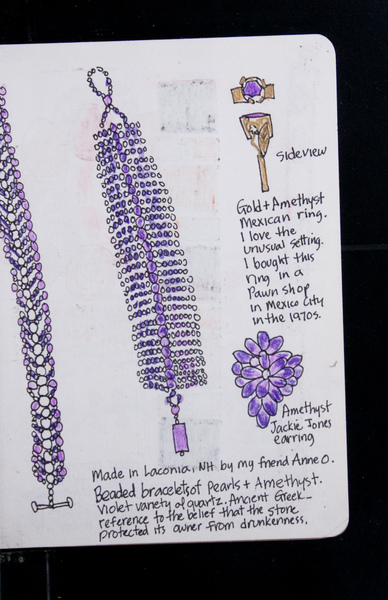 sideview
Gold + Amethyst
Mexican ring.
I love the
unusual setting.
I bought this
ring in a
Pawn shop
in Mexico City
in the 1970s.
Amethyst
Jackie Jones
earring
Made in Laconia, NH by my friend Anne O.
Beaded bracelets of Pearls + Amethyst.
Violet variety of quartz. Ancient Greek_
reference to the belief that the stone
protected its owner from drunkenness.